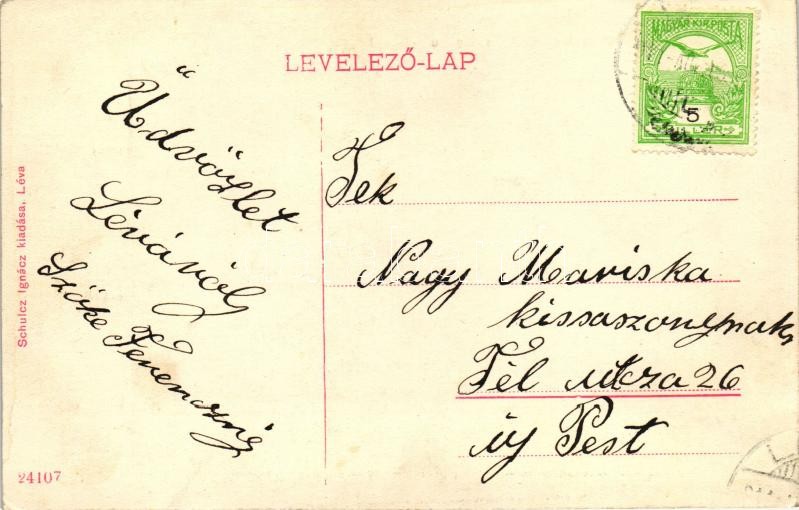 LEVELEZŐ-LAP
MAGYAR KIR. POSTA
5
Üdvözlet
Léváról
Szőke Ferenczné
Tek
Nagy Mariska
kissaszonynak
Tél utcza 26
új Pest
Schulcz Ignácz kiadása, Léva
24107